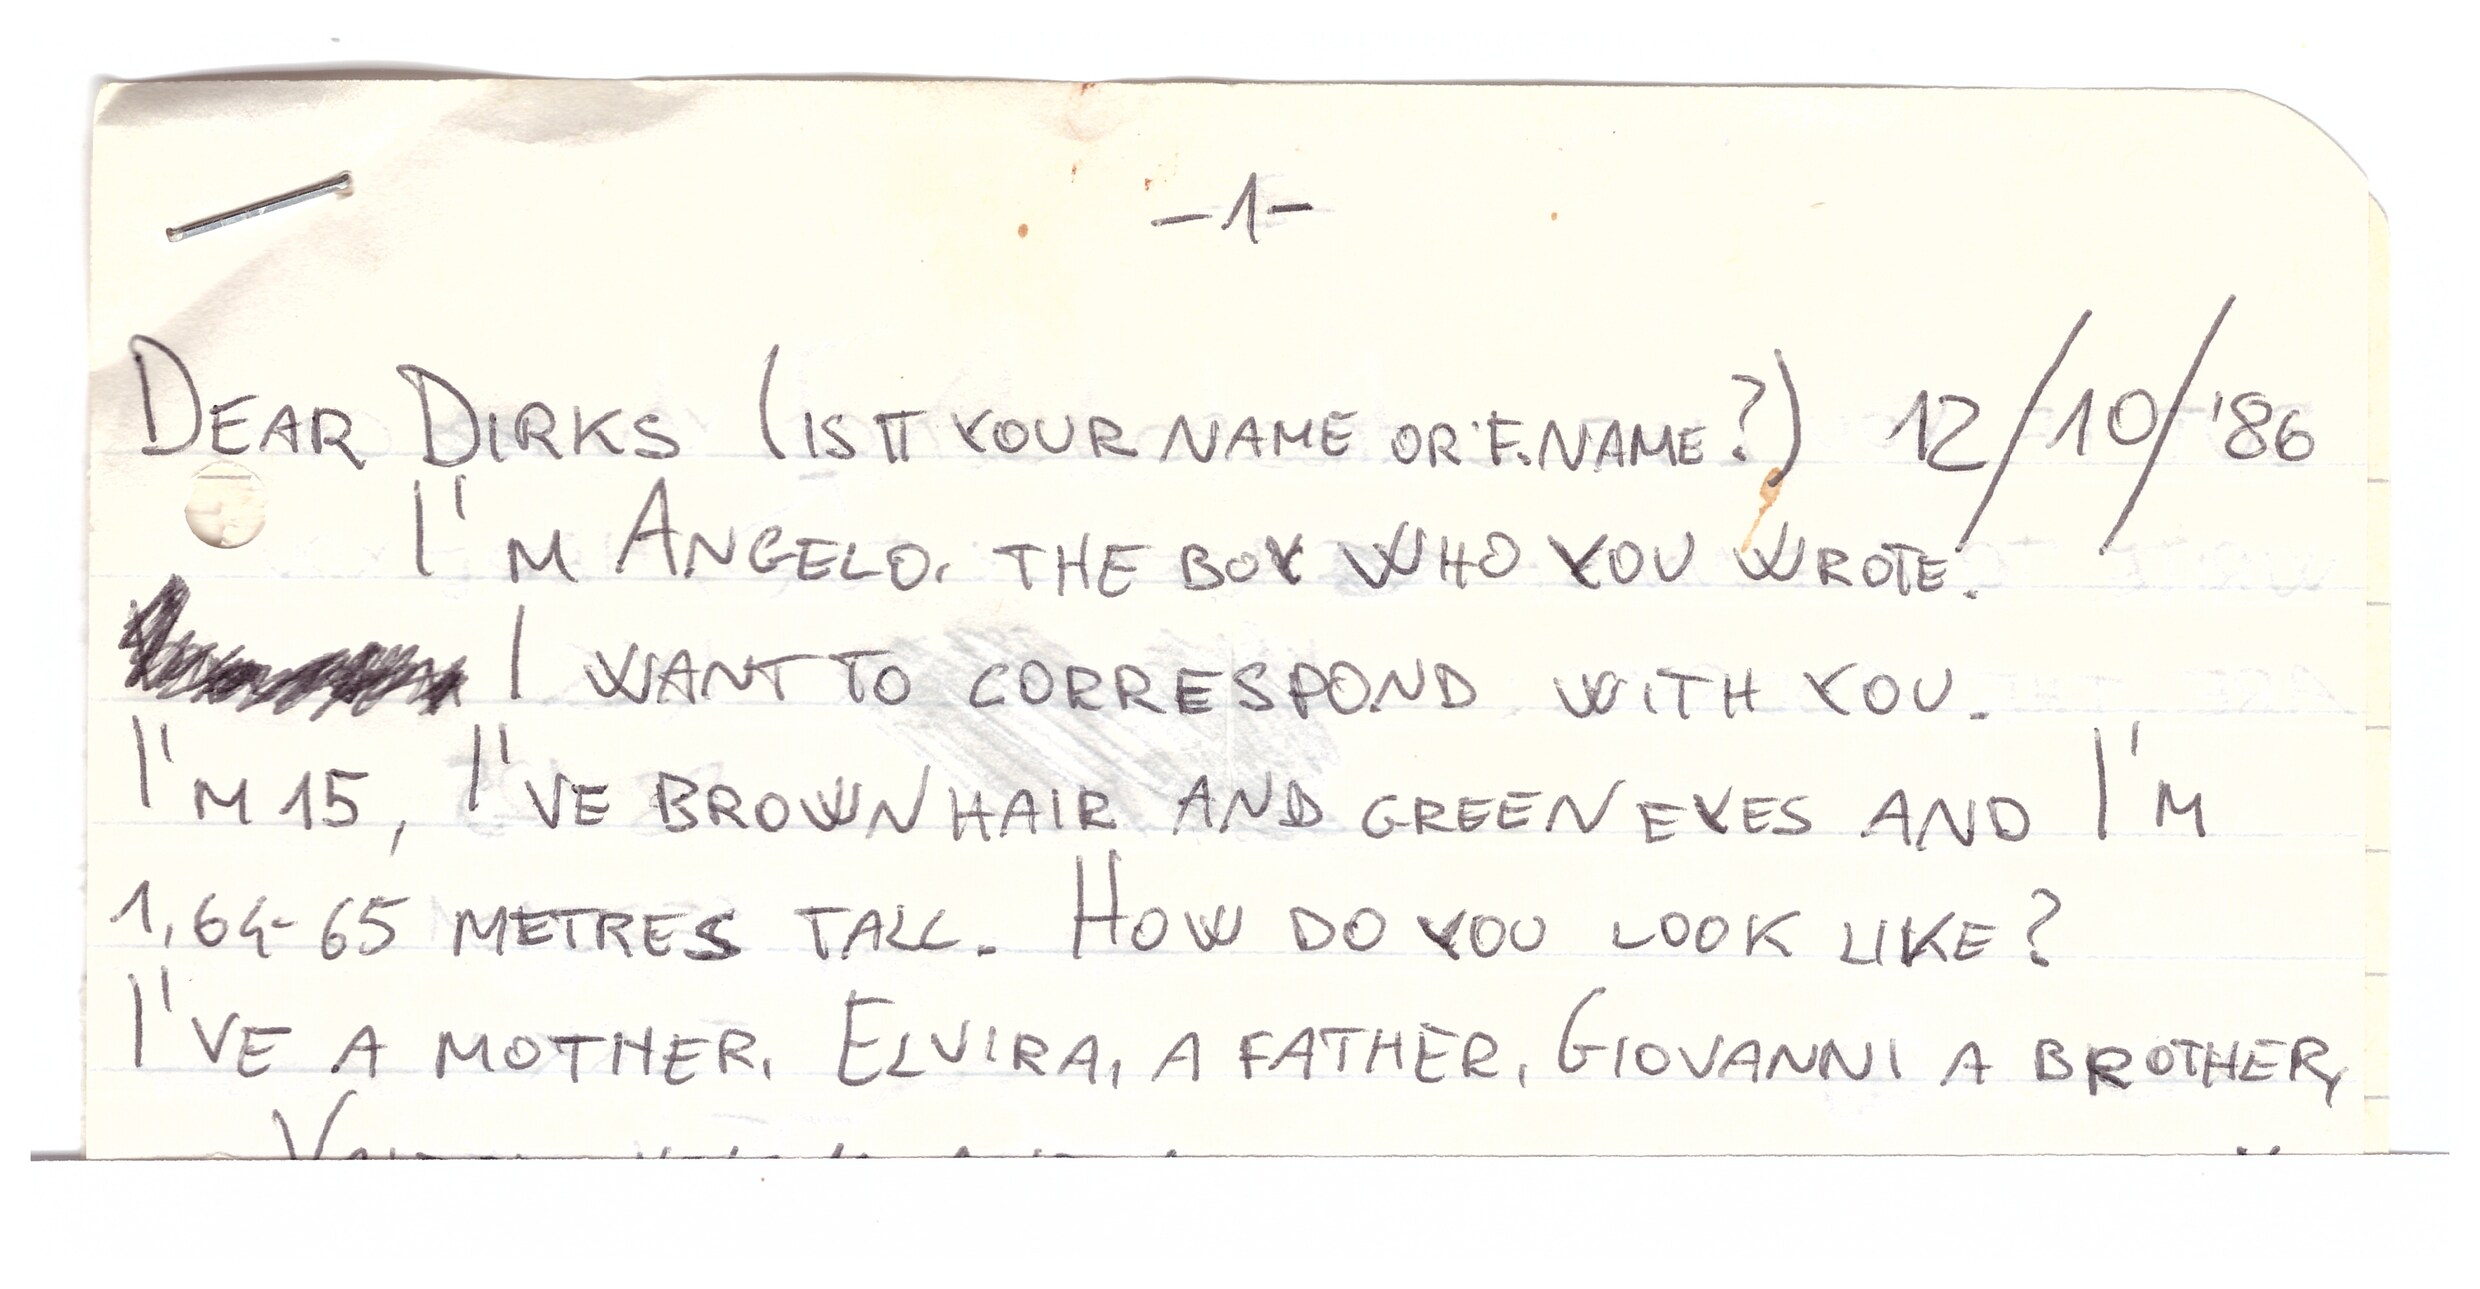 -1-
DEAR DIRKS (IS IT YOUR NAME OR F.NAME?) 12/10/'86
I'M ANGELO, THE BOY WHO YOU WROTE.
I WANT TO CORRESPOND WITH YOU.
I'M 15, I'VE BROWN HAIR AND GREEN EYES AND I'M
1,64-65 METRES TALL. HOW DO YOU LOOK LIKE?
I'VE A MOTHER, ELVIRA, A FATHER, GIOVANNI A BROTHER,